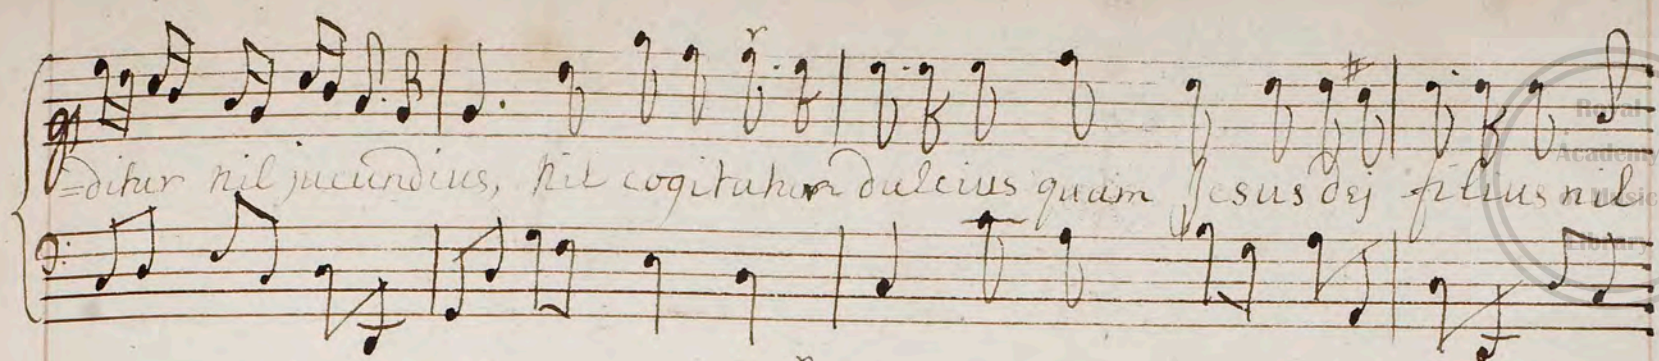 =ditur nil jucundius, nil cogitatur dulcius quam Jesus dej filius nil
Royal
Academy
of Music
Library